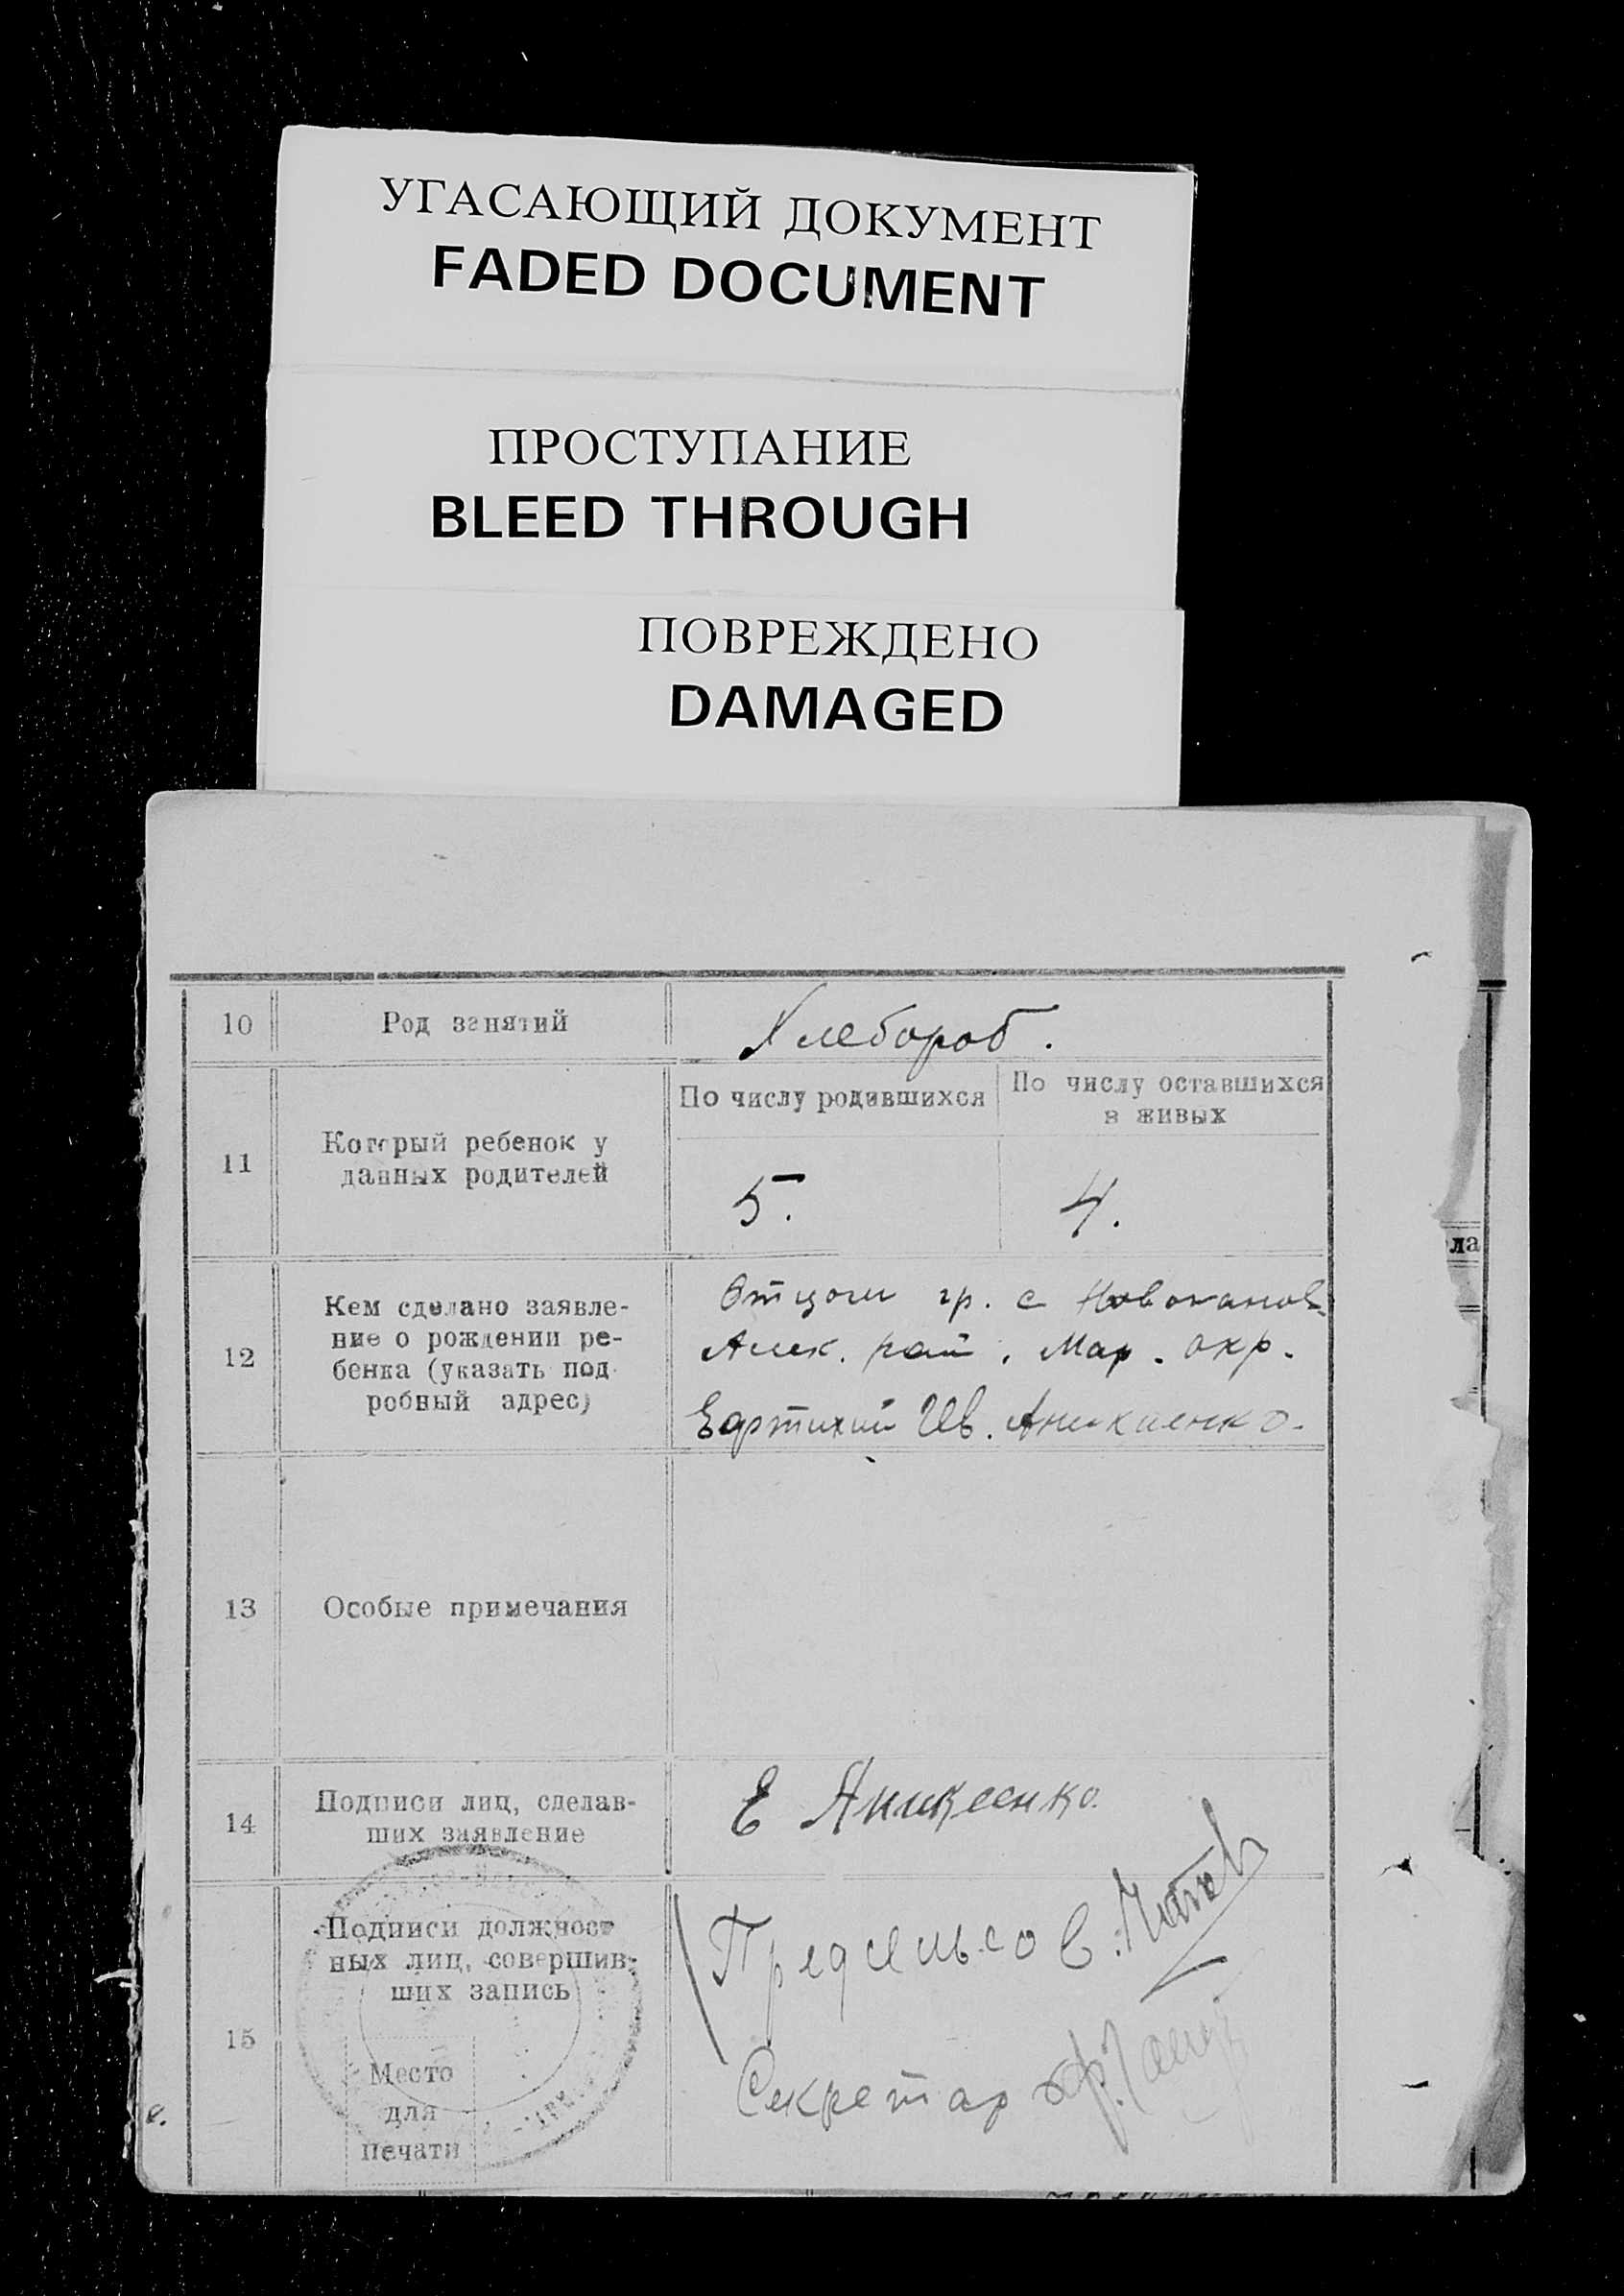 УГАСАЮЩИЙ ДОКУМЕНТ
FADED DOCUMENT
ПРОСТУПАНИЕ
BLEED THROUGH
ПОВРЕЖДЕНО
DAMAGED
10 Род занятий Хлебороб.
11 Который ребенок у данных родителей
По числу родившихся
По числу оставшихся
в живых
5. 4.
ла
12 Кем сделано заявле-
ние о рождении ре-
бенка (указать под-
робный адрес)
Отцом гр. с
рай. Мар. окр.
Евтихий Ив.
13 Особые примечания
14 Подписи лиц, сделав-
ших заявление
Е Аникеенко.
15 Подписи должност
ных лиц, совершив-
ших запись
Место
для
печати
Предсельсов.
Секретар